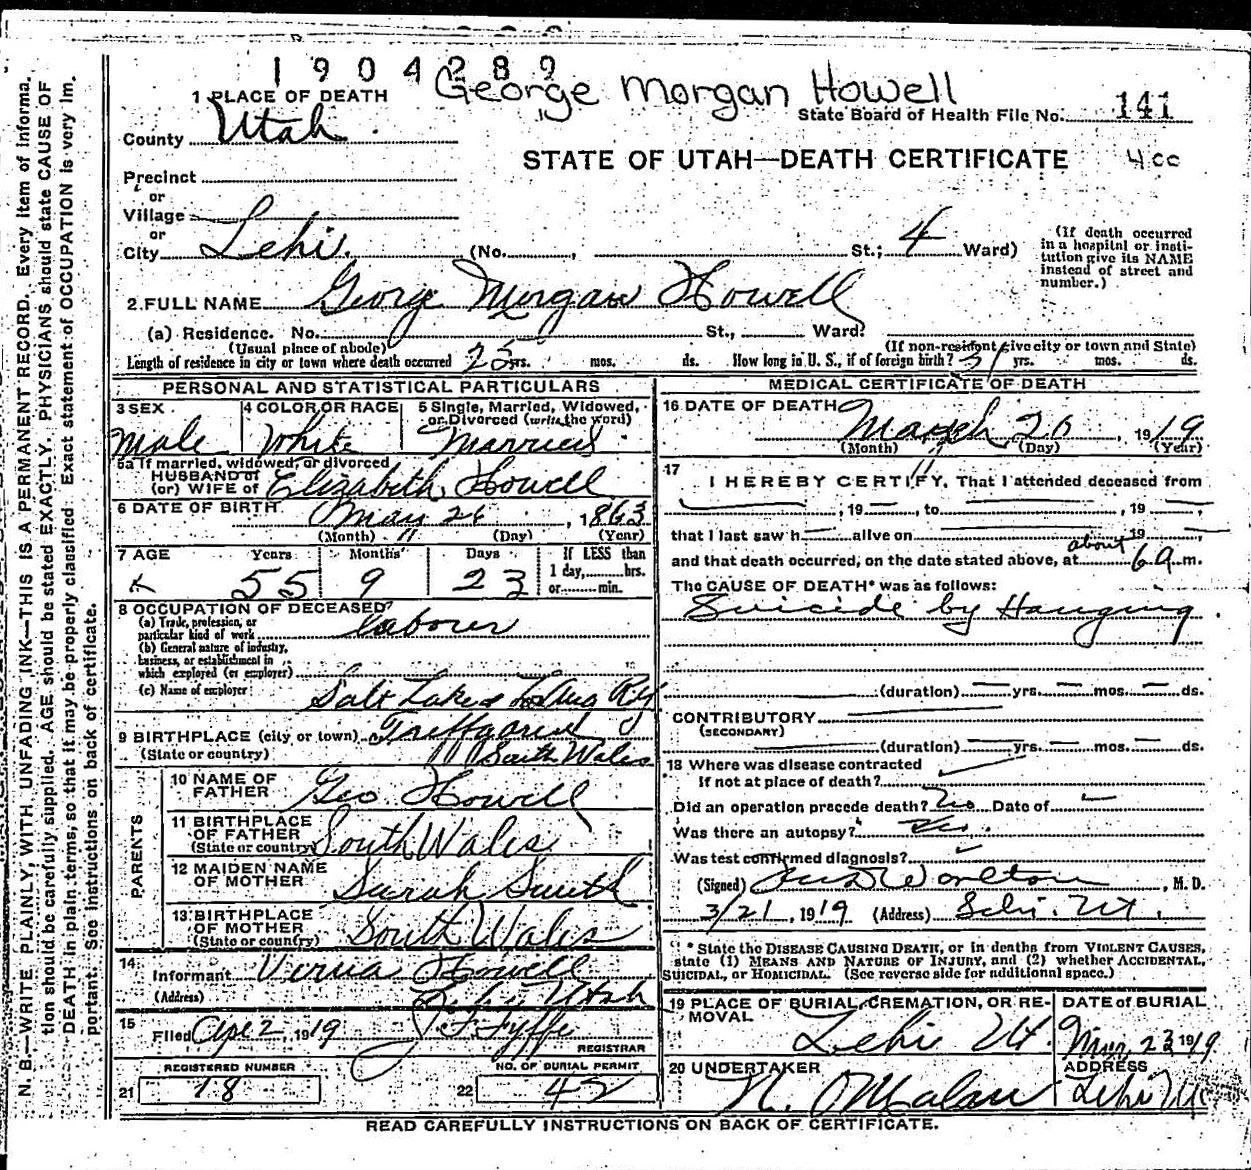 1904289
George Morgan Howell
1 PLACE OF DEATH
State Board of Health File No. 141
County Utah
STATE OF UTAH—DEATH CERTIFICATE 4cc
Precinct
or
Village
or
City Lehi. (No. , St.; 4 Ward)
(If death occurred in a hospital or insti-
tution give its NAME
instead of street and
number.)
2. FULL NAME George Morgan Howell
(a) Residence. No. St., Ward.
(Usual place of abode) (If non-resident give city or town and State)
Length of residence in city or town where death occurred 25 yrs. mos. ds. How long in U. S., if of foreign birth? yrs. mos. ds.
PERSONAL AND STATISTICAL PARTICULARS
3 SEX
Male
4 COLOR OR RACE
White
5 Single, Married, Widowed,
or Divorced (write the word)
Married
5a If married, widowed, or divorced
HUSBAND of
(or) WIFE of Elizabeth Howell
6 DATE OF BIRTH May 26, 1863
(Month) (Day) (Year)
7 AGE Years Months Days If LESS than
1 day, hrs.
or min.
55 9 23
8 OCCUPATION OF DECEASED
(a) Trade, profession, or
particular kind of work laborer
(b) General nature of industry,
business, or establishment in
which employed (or employer)
(c) Name of employer Salt Lake & Ry
9 BIRTHPLACE (city or town)
(State or country) South Wales
PARENTS
10 NAME OF
FATHER Geo Howell
11 BIRTHPLACE
OF FATHER
(State or country) South Wales
12 MAIDEN NAME
OF MOTHER Sarah Smith
13 BIRTHPLACE
OF MOTHER
(State or country) South Wales
14
Informant Howell
(Address) Lehi Utah
15
Filed Apr 2, 1919 J F Fyffe
REGISTRAR
REGISTERED NUMBER
21 18
NO. OF BURIAL PERMIT
22 42
MEDICAL CERTIFICATE OF DEATH
16 DATE OF DEATH March 20, 1919
(Month) (Day) (Year)
17
I HEREBY CERTIFY, That I attended deceased from
, 19 , to , 19 ,
that I last saw h alive on 19 ,
and that death occurred, on the date stated above, at about 6 a. m.
The CAUSE OF DEATH* was as follows:
Suicide by Hanging.
(duration) yrs. mos. ds.
CONTRIBUTORY
(SECONDARY)
(duration) yrs. mos. ds.
18 Where was disease contracted
If not at place of death?
Did an operation precede death? No Date of
Was there an autopsy? No.
Was test confirmed diagnosis?
(Signed) , M. D.
3/21, 1919 (Address) Lehi. Ut.
* State the DISEASE CAUSING DEATH, or in deaths from VIOLENT CAUSES,
state (1) MEANS AND NATURE OF INJURY, and (2) whether ACCIDENTAL,
SUICIDAL, or HOMICIDAL. (See reverse side for additional space.)
19 PLACE OF BURIAL, CREMATION, OR RE-
MOVAL
Lehi Ut.
DATE of BURIAL
Mar 23 1919
20 UNDERTAKER
N. O Malan
ADDRESS
Lehi Ut
READ CAREFULLY INSTRUCTIONS ON BACK OF CERTIFICATE.
N. B.—WRITE PLAINLY, WITH UNFADING INK—THIS IS A PERMANENT RECORD. Every item of informa-
tion should be carefully supplied. AGE should be stated EXACTLY. PHYSICIANS should state CAUSE OF
DEATH in plain terms, so that it may be properly classified. Exact statement of OCCUPATION is very im-
portant. See instructions on back of certificate.